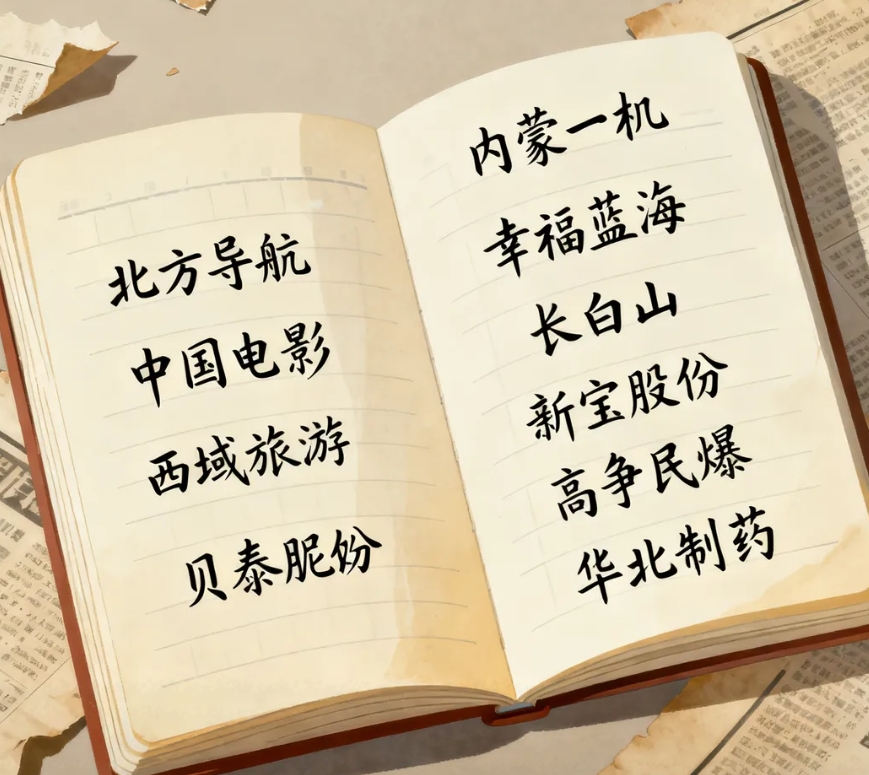 北方导航
中国电影
西域旅游
贝泰昵份
内蒙一机
幸福蓝海
长白山
新宝股份
高争民爆
华北制药